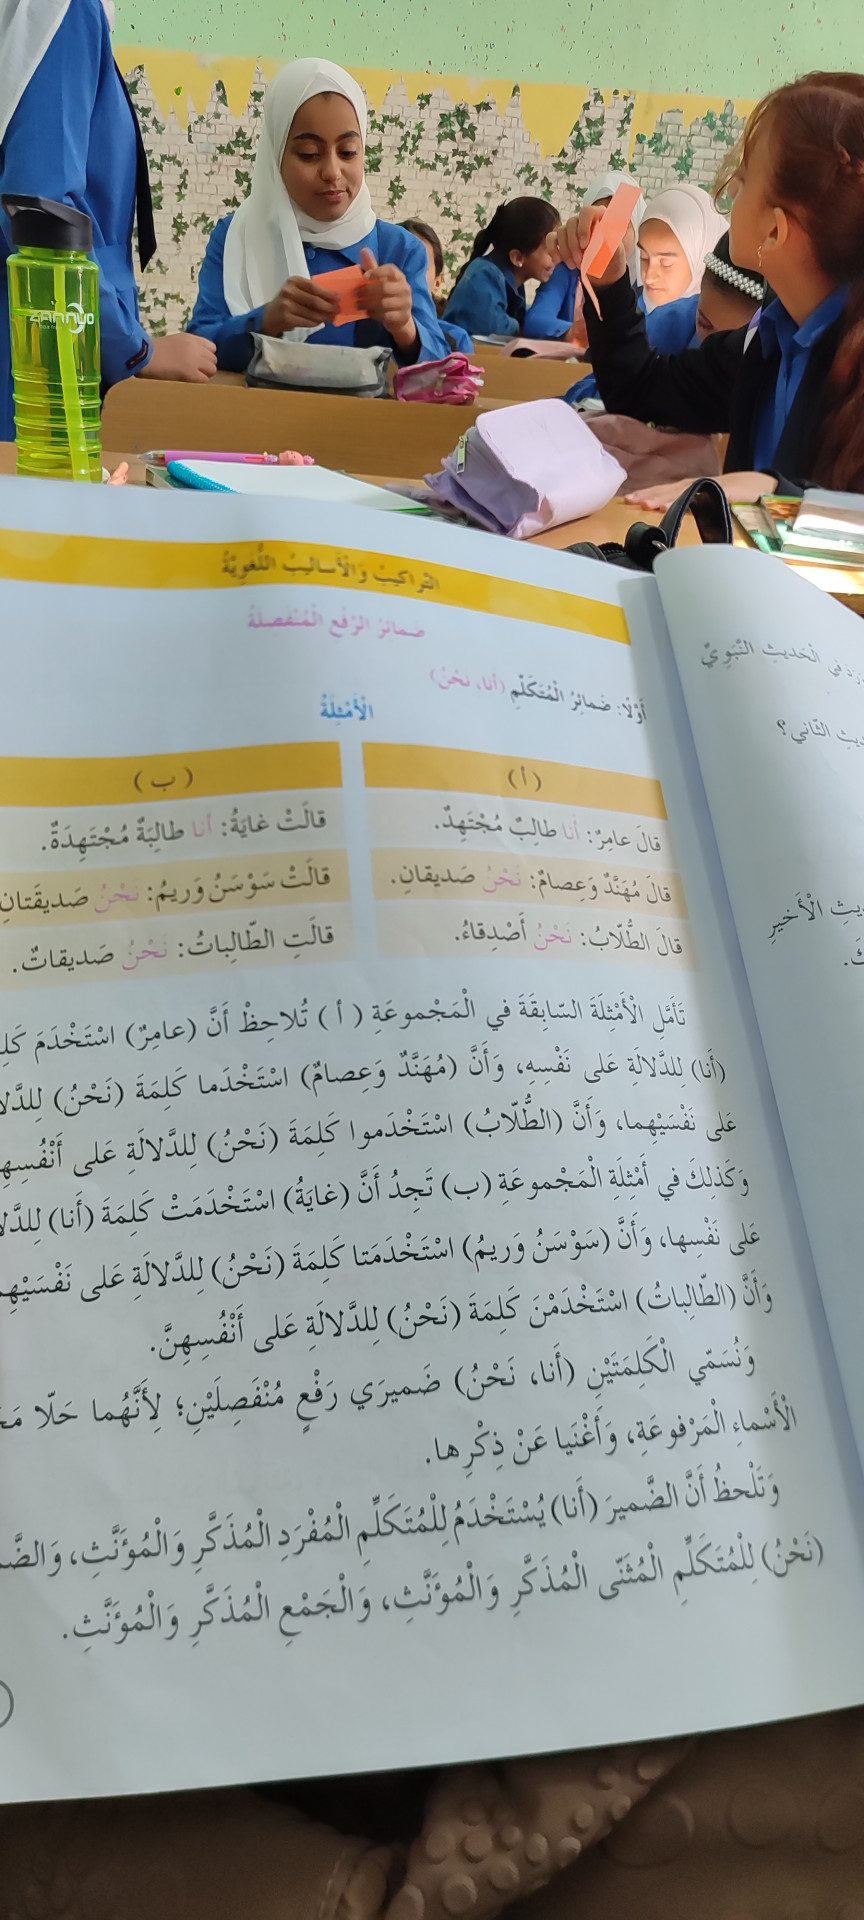 ZANNUO
التراكيب والأساليب اللُّغويّة
ضَمائرُ الرَّفْعِ الْمُنْفَصِلَةُ
أَوَّلًا: ضَمائِرُ الْمُتَكَلِّمِ (أَنا، نَحْنُ)
الْأَمْثِلَةُ
(أ) (ب)
قالَ عامِرٌ: أَنا طالِبٌ مُجْتَهِدٌ. قالَتْ غايَةُ: أَنا طالِبَةٌ مُجْتَهِدَةٌ.
قالَ مُهَنَّدٌ وَعِصامٌ: نَحْنُ صَديقانِ. قالَتْ سَوْسَنُ وَريمُ: نَحْنُ صَديقَتانِ
قالَ الطُّلّابُ: نَحْنُ أَصْدِقاءُ. قالَتِ الطّالِباتُ: نَحْنُ صَديقاتٌ.
تَأَمَّلِ الْأَمْثِلَةَ السّابِقَةَ في الْمَجْموعَةِ (أ) تُلاحِظْ أَنَّ (عامِرٌ) اسْتَخْدَمَ
(أَنا) لِلدَّلالَةِ عَلى نَفْسِهِ، وَأَنَّ (مُهَنَّدٌ وَعِصامٌ) اسْتَخْدَما كَلِمَةَ (نَحْنُ)
عَلى نَفْسَيْهِما، وَأَنَّ (الطُّلّابُ) اسْتَخْدَموا كَلِمَةَ (نَحْنُ) لِلدَّلالَةِ عَلى
وَكَذلِكَ في أَمْثِلَةِ الْمَجْموعَةِ (ب) تَجِدُ أَنَّ (غايَةُ) اسْتَخْدَمَتْ كَلِمَةَ (أَنا)
عَلى نَفْسِها، وَأَنَّ (سَوْسَنُ وَريمُ) اسْتَخْدَمَتا كَلِمَةَ (نَحْنُ) لِلدَّلالَةِ عَلى
وَأَنَّ (الطّالِباتُ) اسْتَخْدَمْنَ كَلِمَةَ (نَحْنُ) لِلدَّلالَةِ عَلى أَنْفُسِهِنَّ.
وَنُسَمّي الْكَلِمَتَيْنِ (أَنا، نَحْنُ) ضَميرَي رَفْعٍ مُنْفَصِلَيْنِ؛ لِأَنَّهُما حَلّا
الْأَسْماءِ الْمَرْفوعَةِ، وَأَغْنَيا عَنْ ذِكْرِها.
وَتَلْحظُ أَنَّ الضَّميرَ (أَنا) يُسْتَخْدَمُ لِلْمُتَكَلِّمِ الْمُفْرَدِ الْمُذَكَّرِ وَالْمُؤَنَّثِ،
(نَحْنُ) لِلْمُتَكَلِّمِ الْمُثَنّى الْمُذَكَّرِ وَالْمُؤَنَّثِ، وَالْجَمْعِ الْمُذَكَّرِ وَالْمُؤَنَّثِ.
في الْحَديثِ النَّبَوِيِّ
الثّاني؟
الْأَخيرِ